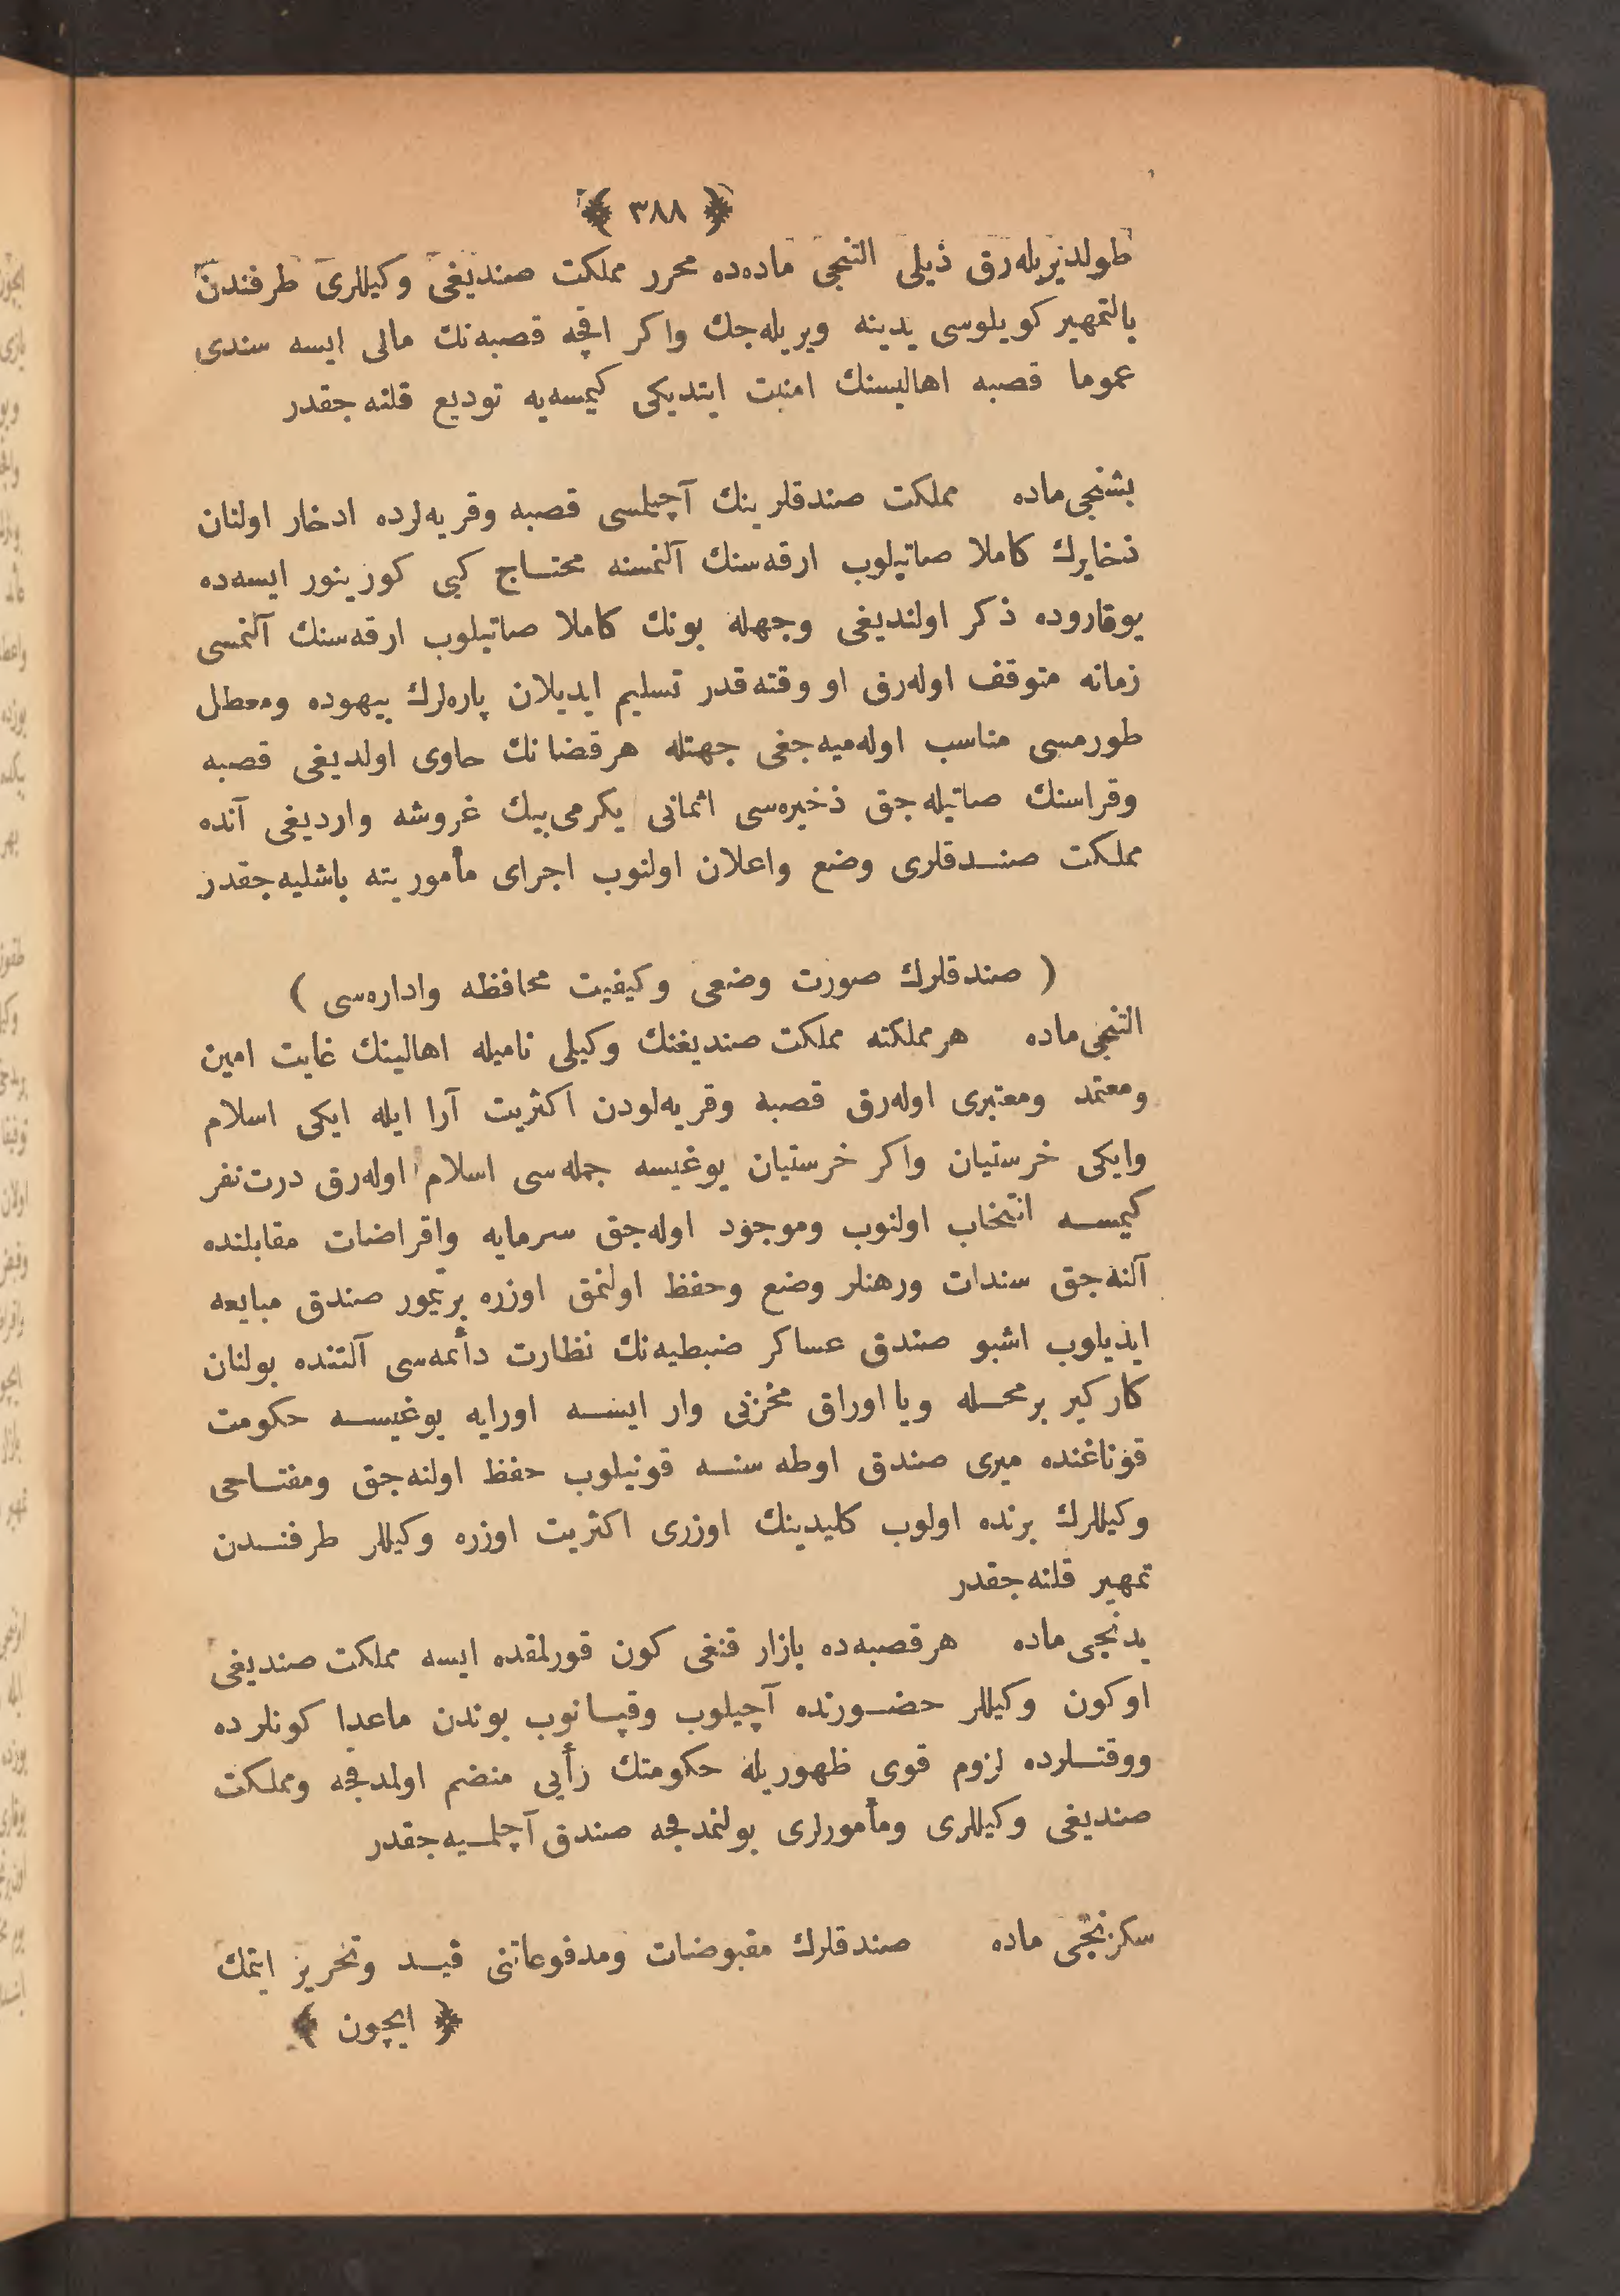 ﴿ ٣٨٨ ﴾
طولدیریله‌رق ذیلی التنجی ماده‌ده محرر مملکت صندیغی وکیللری طرفندن
بالتمهیر کویلوسی یدینه ویریله‌جك واکر اقچه قصبه‌نك مالی ایسه سندی
عموما قصبه اهالیسنك امنیت ایتدیکی کیمسه‌یه تودیع قلنه‌جقدر
بشنجی ماده مملکت صندقلرینك آچیلمسی قصبه وقریه‌لرده ادخار اولنان
ذخایرك کاملا صاتیلوب ارقه‌سنك آلنمسنه محتاج کبی کورینور ایسه‌ده
یوقاروده ذکر اولندیغی وجهله بونك کاملا صاتیلوب ارقه‌سنك آلنمسی
زمانه متوقف اوله‌رق او وقته‌قدر تسلیم ایدیلان پاره‌لرك بیهوده ومعطل
طورمسی مناسب اوله‌میه‌جغی جهتله هرقضانك حاوی اولدیغی قصبه
وقراسنك صاتیله‌جق ذخیره‌سی اثمانی یکرمی بیك غروشه واردیغی آنده
مملکت صندقلری وضع واعلان اولنوب اجرای مأموریته باشلیه‌جقدر
( صندقلرك صورت وضعی وکیفیت محافظه واداره‌سی )
التنجی ماده هرمملکته مملکت صندیغنك وکیلی نامیله اهالینك غایت امین
ومعتمد ومعتبری اوله‌رق قصبه وقریه‌لودن اکثریت آرا ایله ایکی اسلام
وایکی خرستیان واکر خرستیان یوغیسه جمله‌سی اسلام اوله‌رق درت نفر
کیمسه انتخاب اولنوب وموجود اوله‌جق سرمایه واقراضات مقابلنده
آلنه‌جق سندات ورهنلر وضع وحفظ اولنمق اوزره برتیمور صندق مبایعه
ایدیلوب اشبو صندق عساکر ضبطیه‌نك نظارت دأئمه‌سی آلتنده بولنان
کارکیر برمحله ویا اوراق مخزنی وار ایسه اورایه یوغیسه حکومت
قوناغنده میری صندق اوطه سنه قونیلوب حفظ اولنه‌جق ومفتاحی
وکیللرك برنده اولوب کلیدینك اوزری اکثریت اوزره وکیللر طرفندن
تمهیر قلنه‌جقدر
یدنجی ماده هرقصبه‌ده بازار قنغی کون قورلمقده ایسه مملکت صندیغی
اوکون وکیللر حضورنده آچیلوب وقپانوب بوندن ماعدا کونلرده
ووقتلرده لزوم قوی ظهوریله حکومتك رأیی منضم اولمدقجه ومملکت
صندیغی وکیللری ومأمورلری بولنمدقجه صندق آچلمیه‌جقدر
سکزنجی ماده صندقلرك مقبوضات ومدفوعاتنی قید وتحریر ایتمك
﴿ ایچون ﴾